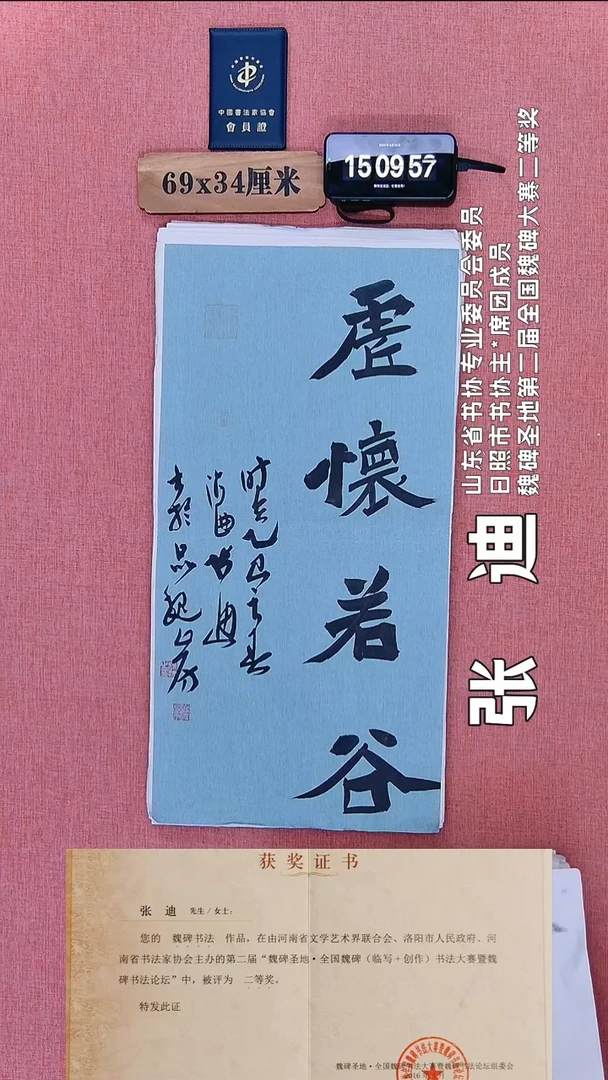 中國書法家協會
會員證
69x34厘米
15 09 57
山东省书协专业委员会委员
日照市书协主*席团成员
魏碑圣地第二届全国魏碑大赛二等奖
张 迪
虚懷若谷
获奖证书
张 迪 先生/女士:
您的 魏碑书法 作品,在由河南省文学艺术界联合会、洛阳市人民政府、河
南省书法家协会主办的第二届“魏碑圣地·全国魏碑(临写+创作)书法大赛暨魏
碑书法论坛”中,被评为 二等奖。
特发此证
魏碑圣地·全国魏碑书法大赛暨魏碑书法论坛组委会